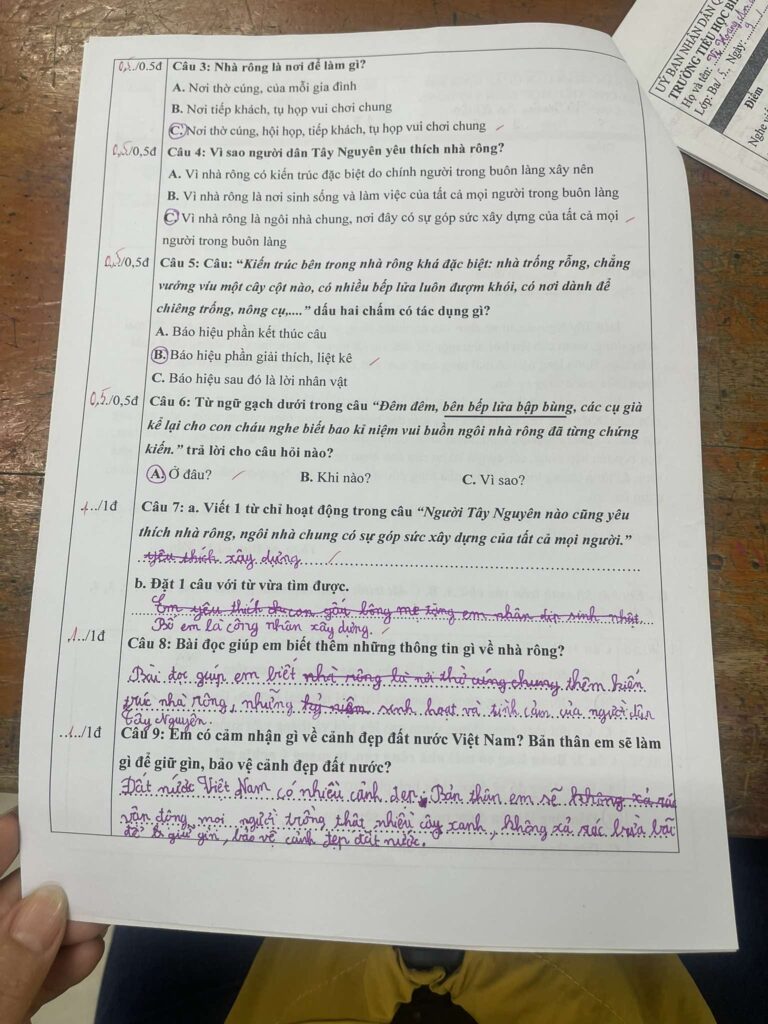 ỦY BAN NHÂN DÂN Q
TRƯỜNG TIỂU HỌC BÌ
Họ và tên:
Lớp: Ba/5.. Ngày: 9/
Điểm
Nghe viế
0,5./0.5đ Câu 3: Nhà rông là nơi để làm gì?
A. Nơi thờ cúng, của mỗi gia đình
B. Nơi tiếp khách, tụ họp vui chơi chung
C. Nơi thờ cúng, hội họp, tiếp khách, tụ họp vui chơi chung
0,5/0,5đ Câu 4: Vì sao người dân Tây Nguyên yêu thích nhà rông?
A. Vì nhà rông có kiến trúc đặc biệt do chính người trong buôn làng xây nên
B. Vì nhà rông là nơi sinh sống và làm việc của tất cả mọi người trong buôn làng
C. Vì nhà rông là ngôi nhà chung, nơi đây có sự góp sức xây dựng của tất cả mọi
người trong buôn làng
0,5/0,5đ Câu 5: Câu: “Kiến trúc bên trong nhà rông khá đặc biệt: nhà trống rỗng, chẳng
vướng víu một cây cột nào, có nhiều bếp lửa luôn đượm khói, có nơi dành để
chiêng trống, nông cụ,....” dấu hai chấm có tác dụng gì?
A. Báo hiệu phần kết thúc câu
B. Báo hiệu phần giải thích, liệt kê
C. Báo hiệu sau đó là lời nhân vật
0,5./0,5đ Câu 6: Từ ngữ gạch dưới trong câu “Đêm đêm, bên bếp lửa bập bùng, các cụ già
kể lại cho con cháu nghe biết bao kỉ niệm vui buồn ngôi nhà rông đã từng chứng
kiến.” trả lời cho câu hỏi nào?
A. Ở đâu? B. Khi nào? C. Vì sao?
1../1đ Câu 7: a. Viết 1 từ chỉ hoạt động trong câu “Người Tây Nguyên nào cũng yêu
thích nhà rông, ngôi nhà chung có sự góp sức xây dựng của tất cả mọi người.”
yêu thích xây dựng
b. Đặt 1 câu với từ vừa tìm được.
Em yêu thích con gấu bông mẹ tặng em nhân dịp sinh nhật
Bố em là công nhân xây dựng.
1../1đ Câu 8: Bài đọc giúp em biết thêm những thông tin gì về nhà rông?
Bài đọc giúp em biết nhà rông là nơi thờ cúng chung thêm kiến
trúc nhà rông, những kỷ niệm sinh hoạt và tình cảm của người dân
Tây Nguyên.
1../1đ Câu 9: Em có cảm nhận gì về cảnh đẹp đất nước Việt Nam? Bản thân em sẽ làm
gì để giữ gìn, bảo vệ cảnh đẹp đất nước?
Đất nước Việt Nam có nhiều cảnh đẹp. Bản thân em sẽ không xả rác
vận động mọi người trồng thật nhiều cây xanh, không xả rác bừa bãi
để giữ gìn, bảo vệ cảnh đẹp đất nước.